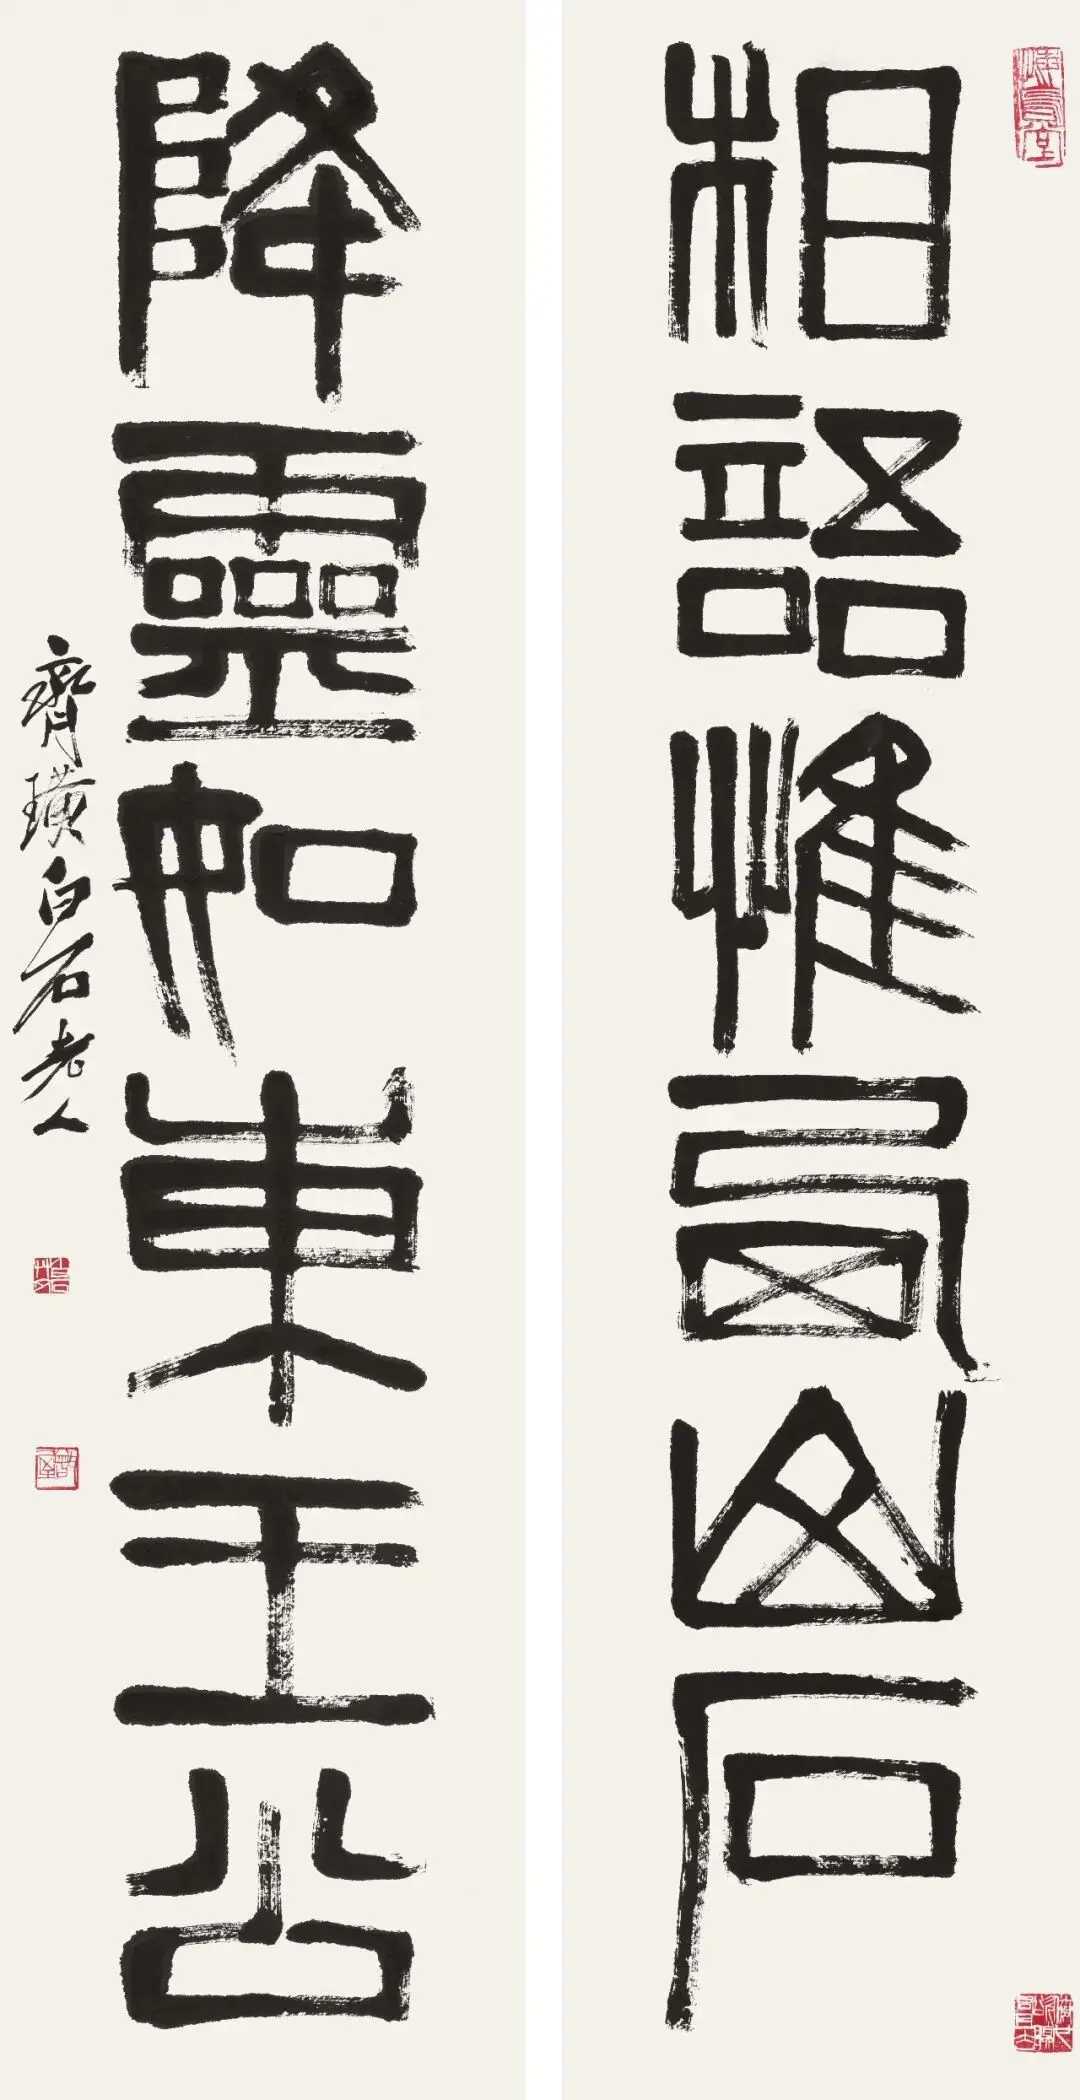 相語惟西岳石
降靈如東王公
齊璜白石老人